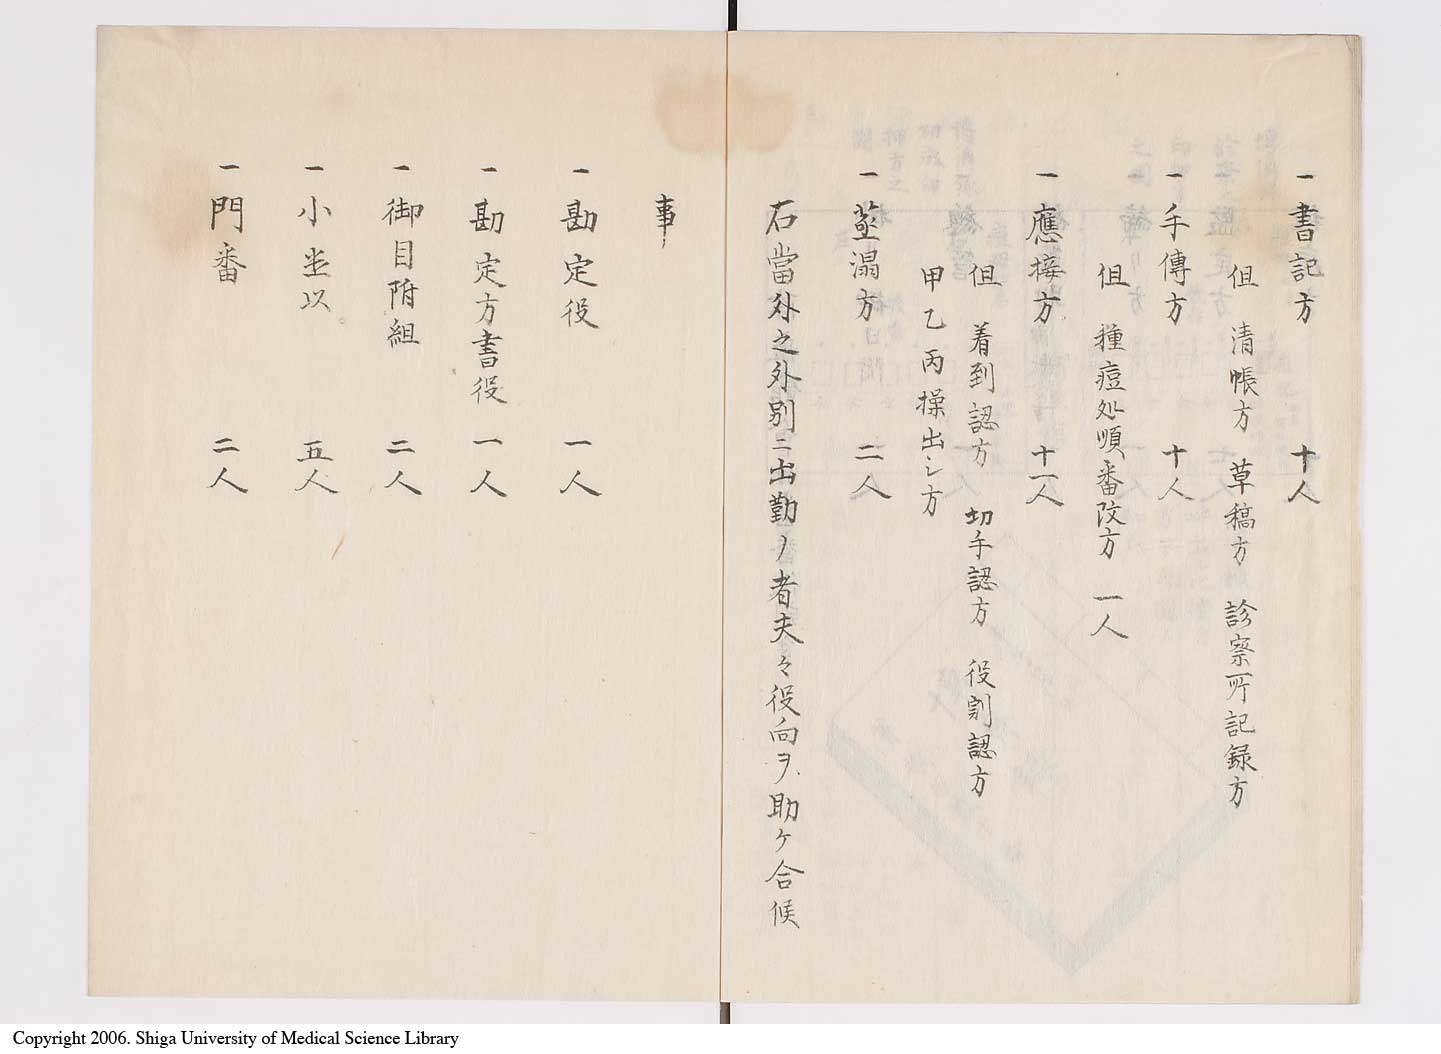 一 書記方 十人
但 清帳方 草稿方 診察所記録方
一 手傳方 十人
但 種痘処順番改方 一人
一 應接方 十一人
但 着到認方 切手認方 役割認方
甲乙丙操出シ方
一 蒸溻方 二人
右當外之外別ニ出勤ノ者夫々役向ヲ助ケ合候
事
一 勘定役 一人
一 勘定方書役 一人
一 御目附組 二人
一 小坐以 五人
一 門番 二人
Copyright 2006. Shiga University of Medical Science Library